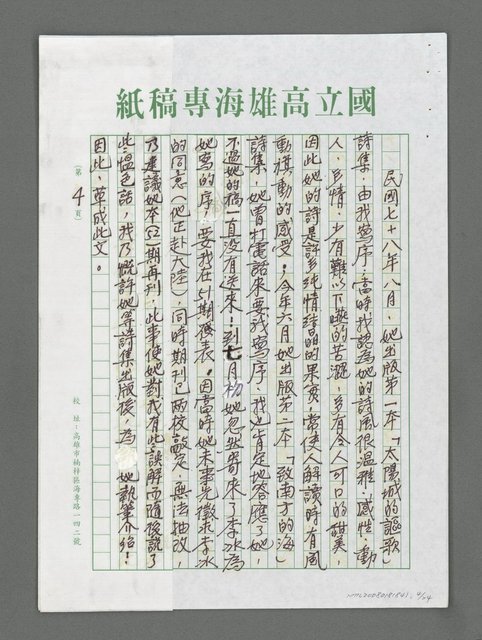 國立高雄海專稿紙
民國七十八年八月，她出版第一本「太陽城的謳歌」
詩集，由我寫序，當時我認為她的詩風很溫雅、感性、動
人、多情，少有難以下嚥的苦澀，多有令人可口的甜美，
因此她的詩是許多純情結晶的果實，常使人解讀時有風
動旗動的感受。今年六月她出版第二本「致南方的海」
詩集，她曾打電話來要我寫序，我也肯定地答應了她，
不過她的稿一直沒有送來，到七月初她忽然寄來了李冰為
她寫的序，要我在51期發表。因當時她未事先徵求李冰
的同意（他正赴大陸），同時期刊已兩校敲定，無法抽改，
乃建議她本(52)期再刊，此事使她對我有些誤解而隨後說了
些慍色話，我乃慨許她等詩集出版後，為她執筆介紹！
因此，草成此文。
（第4頁）
校址：高雄市楠梓區海專路一四二號
NMTL20080181841, 4/24